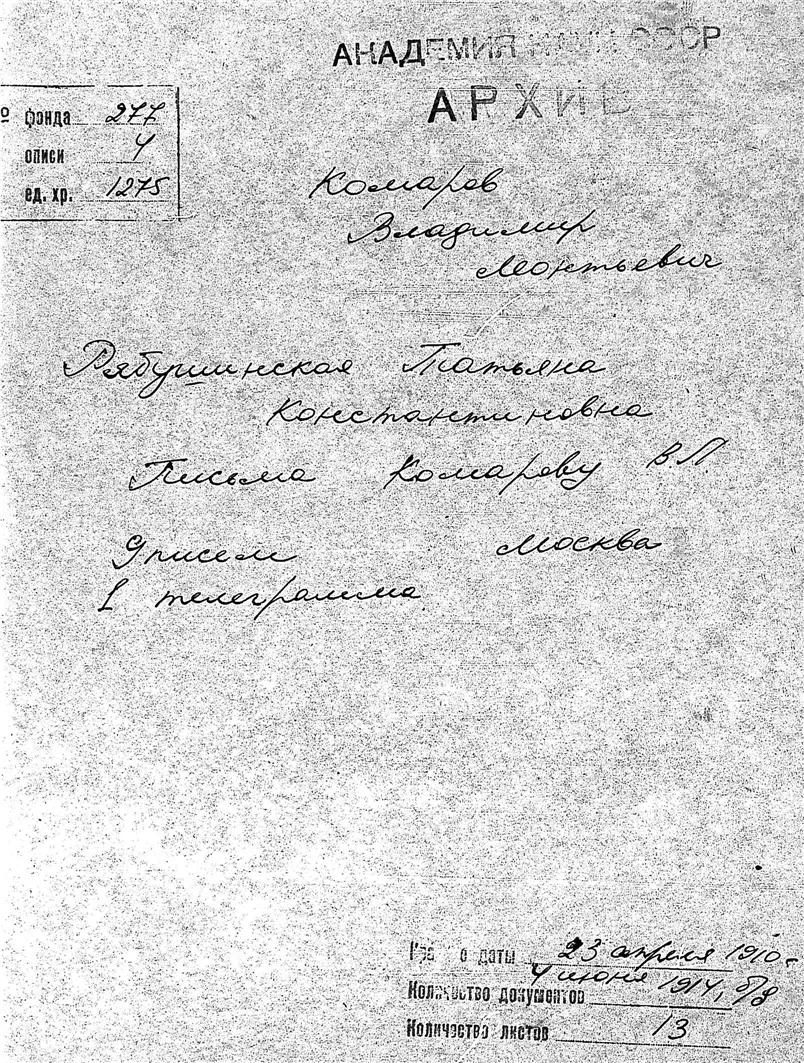 АКАДЕМИЯ НАУК СССР
АРХИВ
№ фонда 277
описи 4
ед. хр. 1275
Комаров
Владимир
Леонтьевич
Рябушинская Татьяна
Константиновна
Письма Комарову ВЛ
9 писем Москва
1 телеграмма
даты 23 апреля 1910-
4 июня 1914, б/д
Количество документов
Количество листов 13